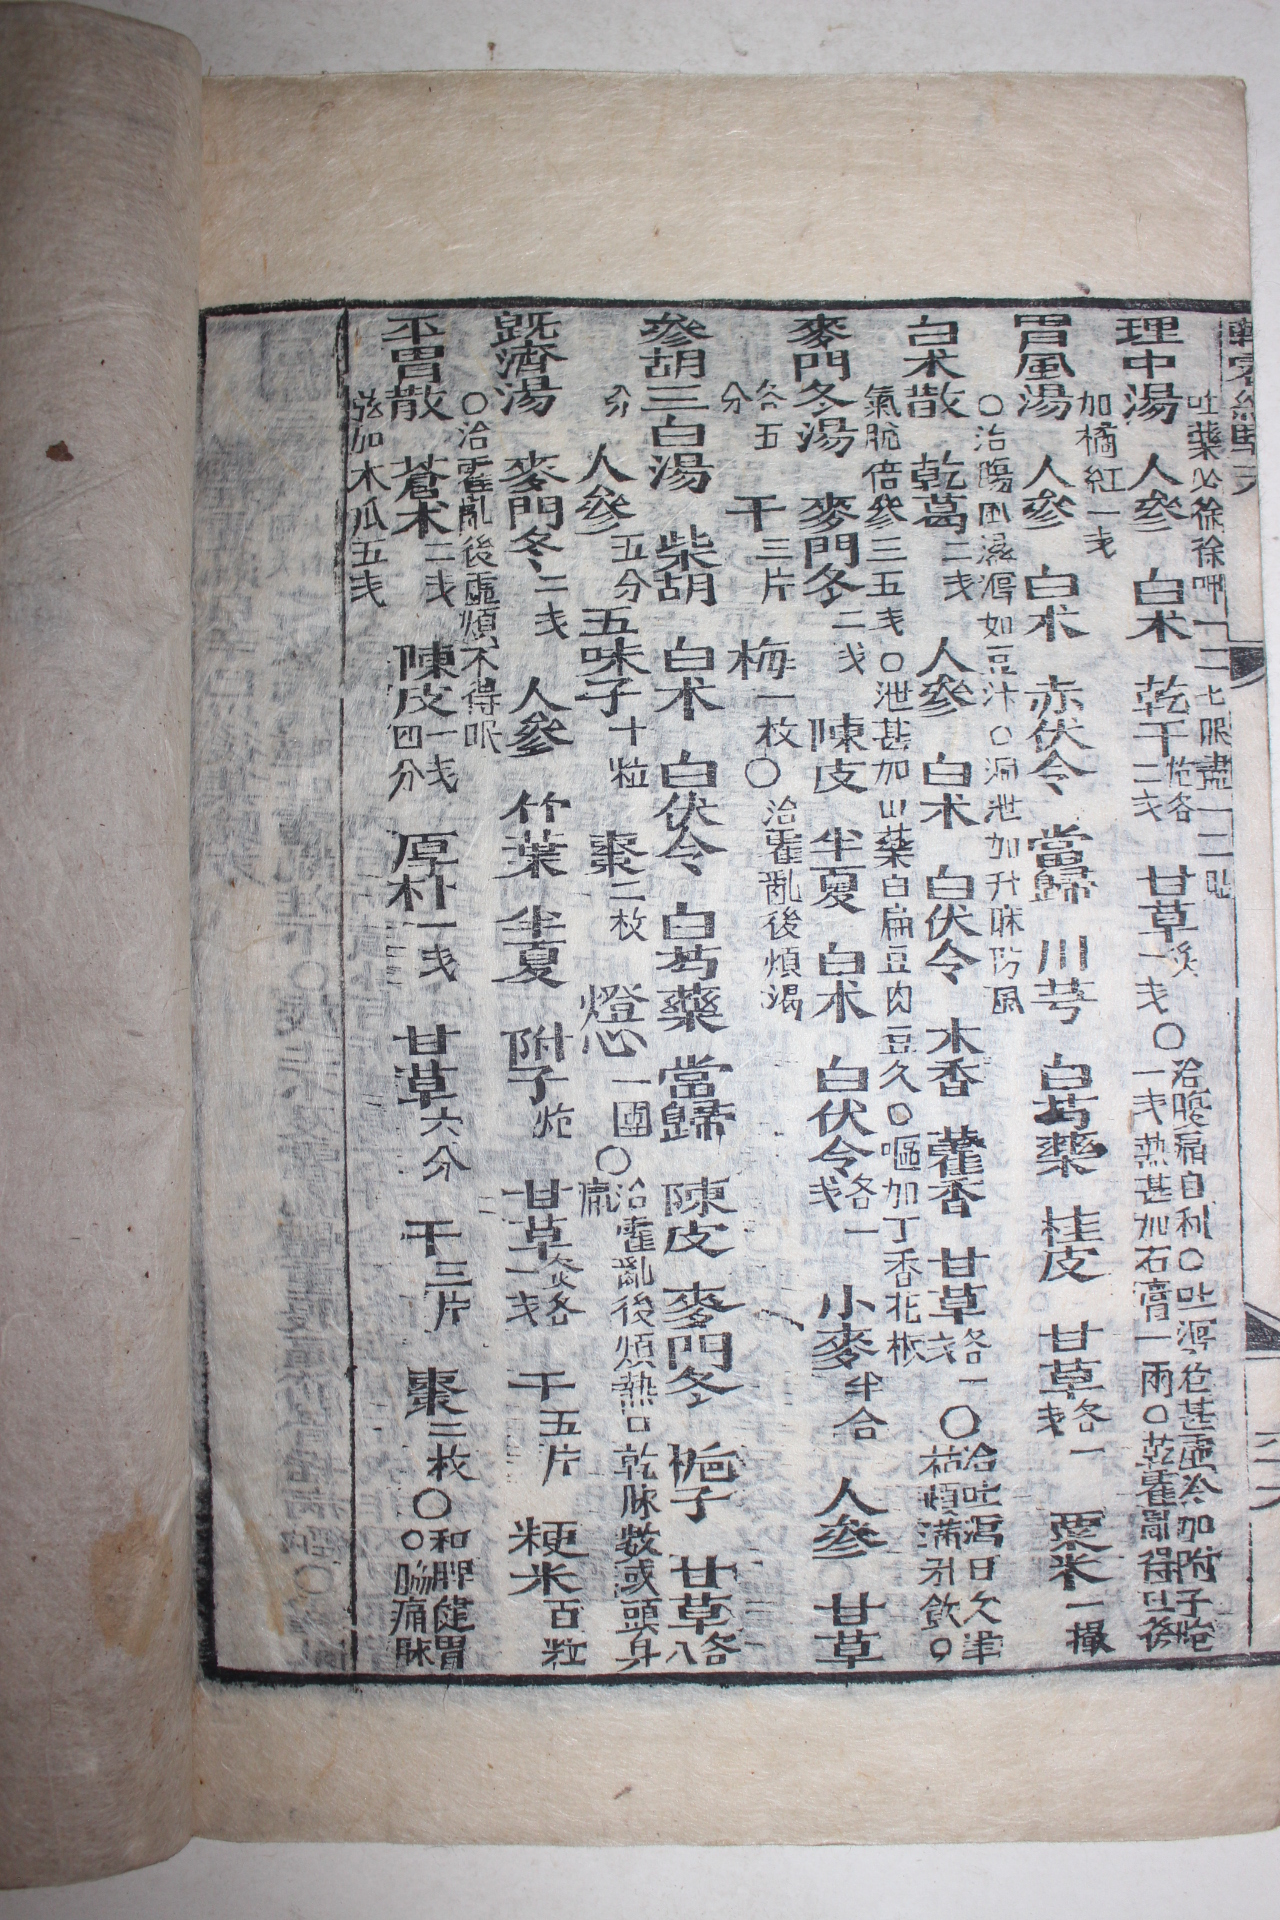 吐藥必徐徐呷一二匕
理中湯 人參 白朮 乾干炮各二戔 甘草灸一戔○治腹痛自利○吐瀉
加橘紅一戔
胃風湯 人參 白朮 赤伏令 當歸 川芎 白芍藥 桂皮 甘草各一戔 粟米一撮
○治 如豆汁○洞泄加升麻防風
白朮散 乾葛二戔 人參 白朮 白伏令 木香 藿香 甘草各一戔○治吐瀉日久津枯煩滿引飮○
氣脫倍參三五戔○泄甚加山藥白扁豆肉豆久○嘔加丁香
麥門冬湯 麥門冬二戔 陳皮 半夏 白朮 白伏令各一戔 小麥半合 人參 甘草
各五分 干三片 梅一枚○治霍亂後煩渴
參胡三白湯 柴胡 白朮 白伏令 白芍藥 當歸 陳皮 麥門冬 梔子 甘草各八
分 人參五分 五味子十粒 棗二枚 燈心一團○治霍亂後煩熱口乾脉數或頭身
旣濟湯 麥門冬二戔 人參 竹葉 半夏 附子炮 甘草灸各一戔 干五片 粳米百粒
○治霍亂後虛煩不得眠
平胃散 蒼朮二戔 陳皮一戔四分 厚朴一戔 甘草六分 干三片 棗二枚○和脾健胃○ 痛脉
弦加木瓜五戔